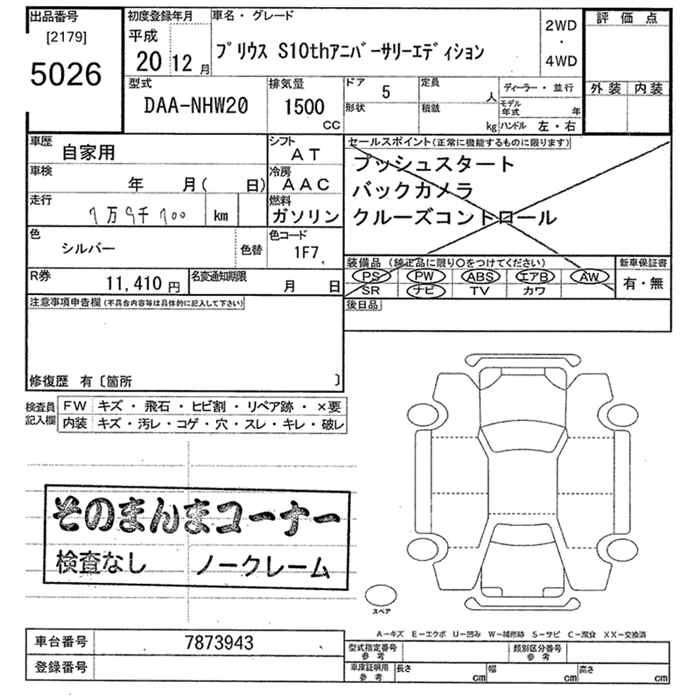 出品番号
[2179]
5026
初度登録年月
平成
20 12 月
車名・グレード
プリウス S10thアニバーサリーエディション
2WD
・
4WD
評 価 点
外装 内装
型式
DAA-NHW20
排気量
1500
CC
ドア 5
形状
定員 人
積載 kg
ディーラー・並行
モデル年式 年
ハンドル 左・右
車歴 自家用
シフト AT
車検 年 月( 日)
冷房 AAC
走行 km
燃料 ガソリン
色 シルバー
色替
色コード 1F7
R券 11,410 円
名変通知期限 月 日
セールスポイント(正常に機能するものに限ります)
プッシュスタート
バックカメラ
クルーズコントロール
装備品 (純正品に限り○をつけてください)
PS PW ABS エアB AW
SR ナビ TV カワ
新車保証書
有・無
後日品
注意事項申告欄(不具合内容等は具体的に記入して下さい)
修復歴 有〔箇所 〕
検査員記入欄
FW キズ・飛石・ヒビ割・リペア跡・×要
内装 キズ・汚レ・コゲ・穴・スレ・キレ・破レ
そのまんまコーナー
検査なし ノークレーム
スペア
A-キズ E-エクボ U-凹み W-補修跡 S-サビ C-腐食 XX-交換済
車台番号 7873943
登録番号
型式指定番号 参考
類別区分番号 参考
車庫証明用 参考
長さ cm
幅 cm
高さ cm